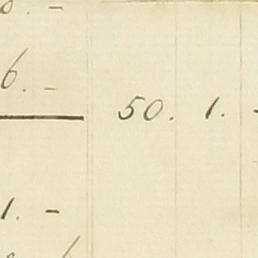 6. -
50. 1. -
1. -